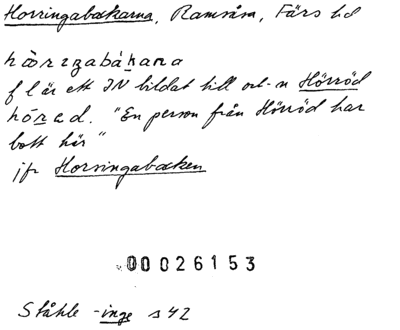 Horringabackarna, Ramsåsa, Färs hd
hòrizgabákana
f l är ett IN bildat till ort-n Hörröd
hö́red. "En person från Hörröd har
bott här"
jfr Horsingabacken
00026153
Ståhle -inge s 42